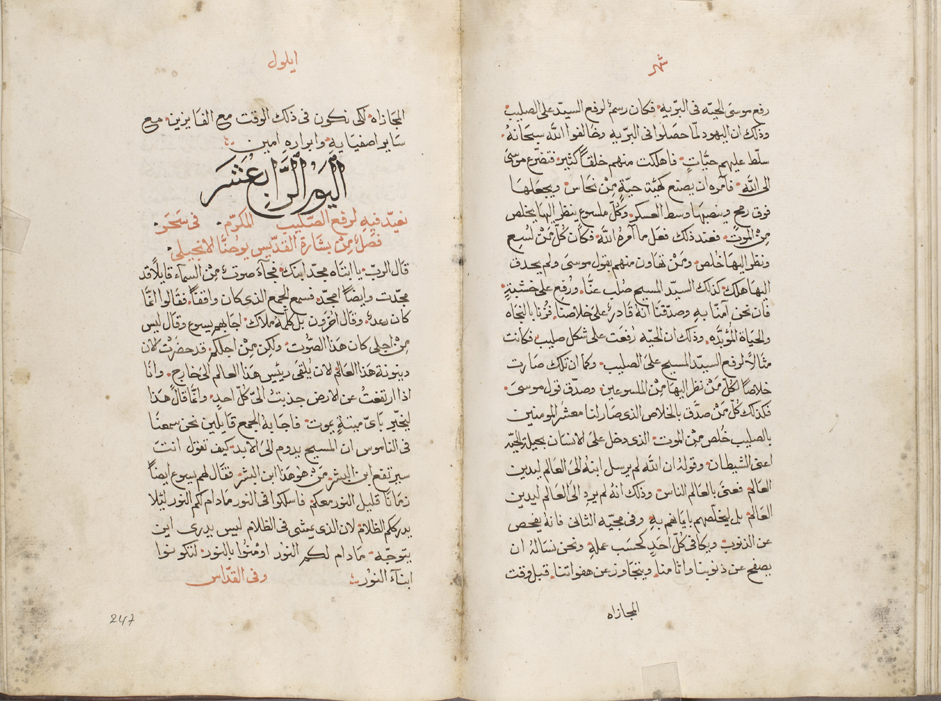 شهر
رفع موسى الحيّه فى البريه فكان رسمٌ لرفع السيّد على الصليب
وذلك ان اليهود لمّا حصلوا فى البريّه وخالفوا الله سبحانهُ
سلّط عليهم حيّاتٍ فاهلكت منهم خلقاً كثير فتضرع موسى
الى الله فامره ان يصنع كهيّة حيةٍ مِن نحاس ويجعلها
فوق رمح وينصبها وسط العسكر وكلّ ملسوع ينظر اليها يخلص
مِن الموت فعند ذلك فعل ما امرهُ الله فكان كلّ مَن لُسع
ونظر اليها خلص ومَن تهاون منهم بقول موسى ولم يحدق
اليها هلك كذلك السيّد المسيح صُلب عنّا ورُفع على خشبةٍ
فان نحن آمنّا بهِ وصدّقنا انّه قادرٌ على خلاصنا فزنا بالنجاه
والحياة المؤبّده وذلك ان الحيّه رُفعت على شكل صليب فكانت
مثالاً لرفع السيّد المسيح على الصليب وكما ان تلك صارت
خلاصاً لكلّ مَن نظر اليها مِن الملسوعين وصدّق قول موسى
فكذلك كلّ مَن صدّق بالخلاص الذى صار لنا معشر المومنين
بالصليب خُلص مِن الموت الذى دخل على الانسان بحيلة الحيّه
اعنى الشيطان وقولهُ ان الله لم يرسل ابنهُ الى العالم ليدين
العالم فعنى بالعالم الناس وذلك انهُ لم يرد الى العالم ليدين
العالم بل ليخلّصهم بايمانهم بهِ وفى مجيّه الثانى فانهُ يفحص
عن الذنوب ويكافى كلّ احدٍ كحسب عملهِ ونحن نسالهُ ان
يصفح عن ذنوبنا واثامنا ويتجاوز عن هفواتنا قبل وقت
المجازاه
ايلول
المجازاه لكى نكون فى ذلك الوقت مع الفايزين مع
ساير اصفيايهِ وابراره امين
اليَوم الرَّابع عَشَر
نعيّد فيهِ لرفع الصَّليب المكرّم فى سَحَر
فصلٌ مِن بشارة القدّيس يوحنّا الانجيلى
قال الربّ يا ابتاه مجّد ابنك فجاءَ صوت مِن السمآء قايلاً قد
مجّدت وايضاً امجّد فسمع الجمع الذى كان واقفاً فقالوا انّما
كان رعدٌ وقال اخرون بل كلّمهُ ملاك اجابهم يسوع وقال ليس
مِن اجلى كان هذا الصّوت ولكن مِن اجلكم قد حضرت لان
دينونة هذا العالم لان يُلقى رييس هذا العالم الى خارج وانا
اذا ارتفعتُ عن الارض جذبتُ الىّ كلّ احدٍ وانّما قال هذا
ليخبّر باىّ ميتةٍ يموت فاجابهُ الجمع قايلين نحن سمعنا
فى الناموس ان المسيح يدوم الى الابد كيف تقول انت
سيرتفع ابن البشر مَن هو هذا ابن البشر فقال لهم يسوع ايضاً
زماناً قليل النور معكم فاسلكوا فى النور مادام لكم النور ليلا
يدرككم الظلام لان الذى يمشى فى الظلام ليس يدرى اين
يتوجّه مادام لكم النور اومنوا بالنور لتكونوا
ابنآءَ النور وفى القدّاس
247